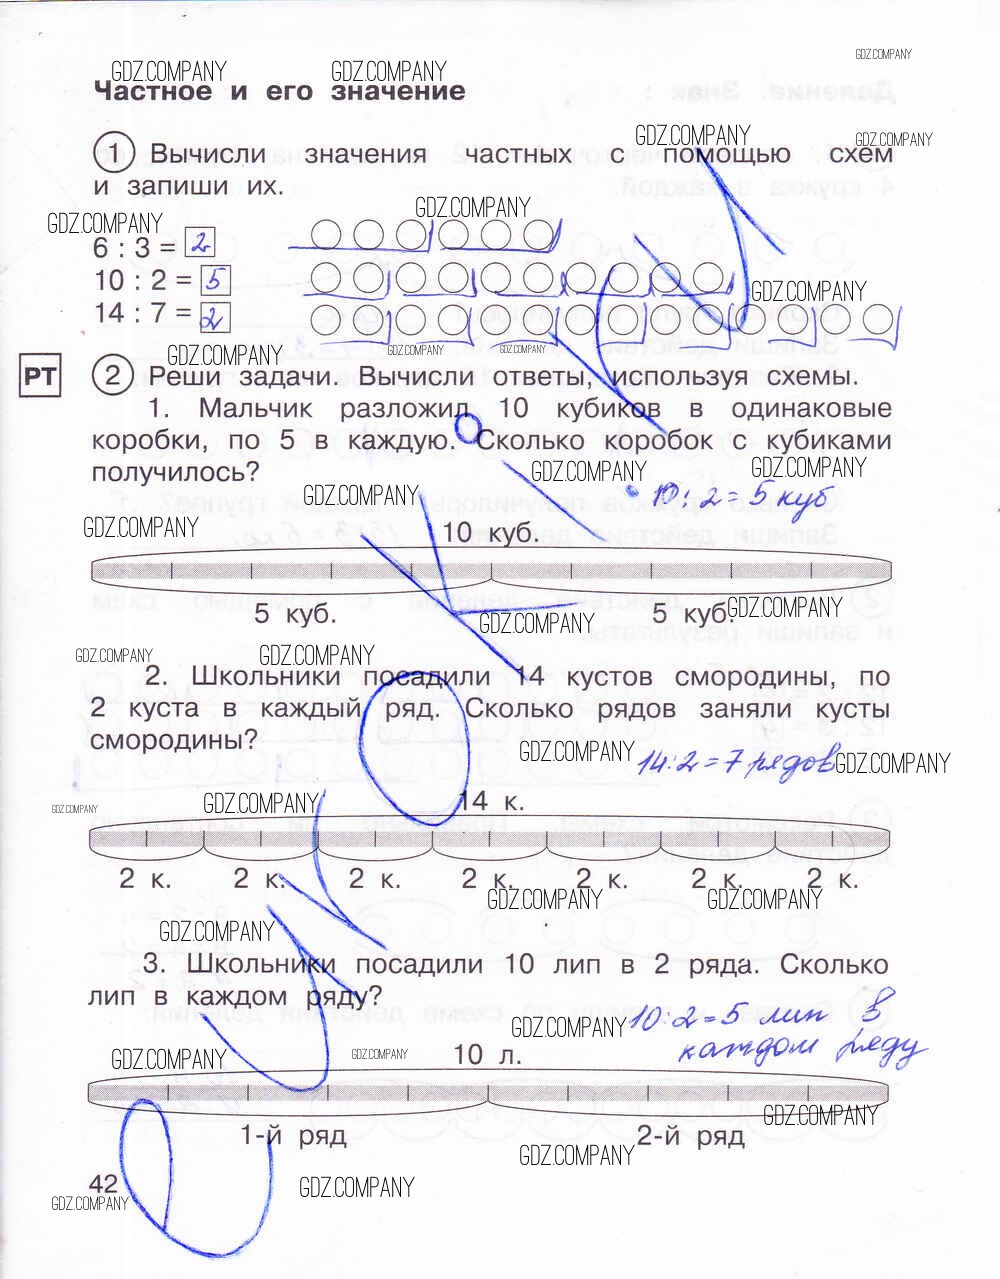 GDZ.COMPANY
GDZ.COMPANY GDZ.COMPANY
Частное и его значение
GDZ.COMPANY GDZ.COMPANY
1 Вычисли значения частных с помощью схем
и запиши их.
GDZ.COMPANY GDZ.COMPANY
6 : 3 = 2
10 : 2 = 5
GDZ.COMPANY
14 : 7 = 2
GDZ.COMPANY GDZ.COMPANY GDZ.COMPANY
РТ 2 Реши задачи. Вычисли ответы, используя схемы.
1. Мальчик разложил 10 кубиков в одинаковые
коробки, по 5 в каждую. Сколько коробок с кубиками
получилось?
GDZ.COMPANY GDZ.COMPANY
GDZ.COMPANY 10 : 2 = 5 куб
GDZ.COMPANY
10 куб.
5 куб. 5 куб.
GDZ.COMPANY
GDZ.COMPANY
GDZ.COMPANY GDZ.COMPANY
2. Школьники посадили 14 кустов смородины, по
2 куста в каждый ряд. Сколько рядов заняли кусты
смородины?
GDZ.COMPANY 14 : 2 = 7 рядов GDZ.COMPANY
GDZ.COMPANY GDZ.COMPANY
14 к.
2 к. 2 к. 2 к. 2 к. 2 к. 2 к. 2 к.
GDZ.COMPANY GDZ.COMPANY
GDZ.COMPANY
3. Школьники посадили 10 лип в 2 ряда. Сколько
лип в каждом ряду?
GDZ.COMPANY 10 : 2 = 5 лип в
каждом ряду
GDZ.COMPANY GDZ.COMPANY
10 л.
GDZ.COMPANY
1-й ряд 2-й ряд
GDZ.COMPANY
42
GDZ.COMPANY
GDZ.COMPANY